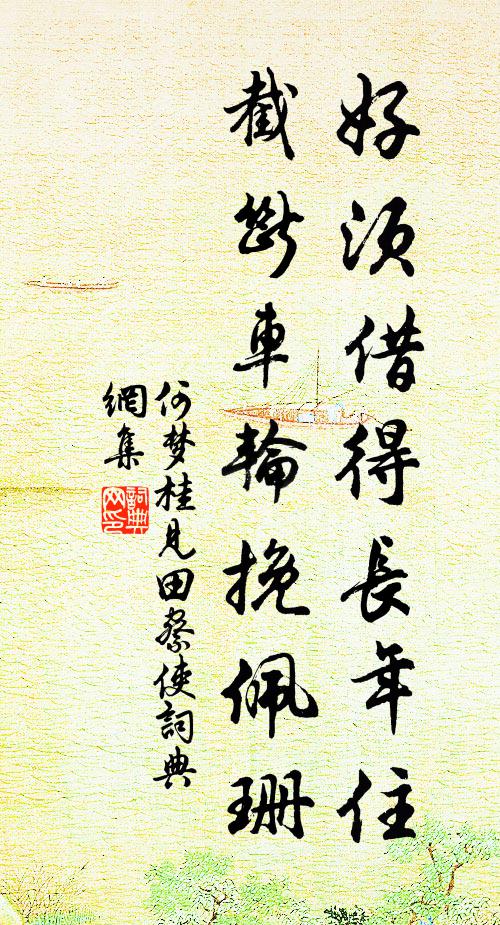 好須借得長年住
截斷車輪挽佩珊
何梦桂見田察使詞典
網集
詞典网印